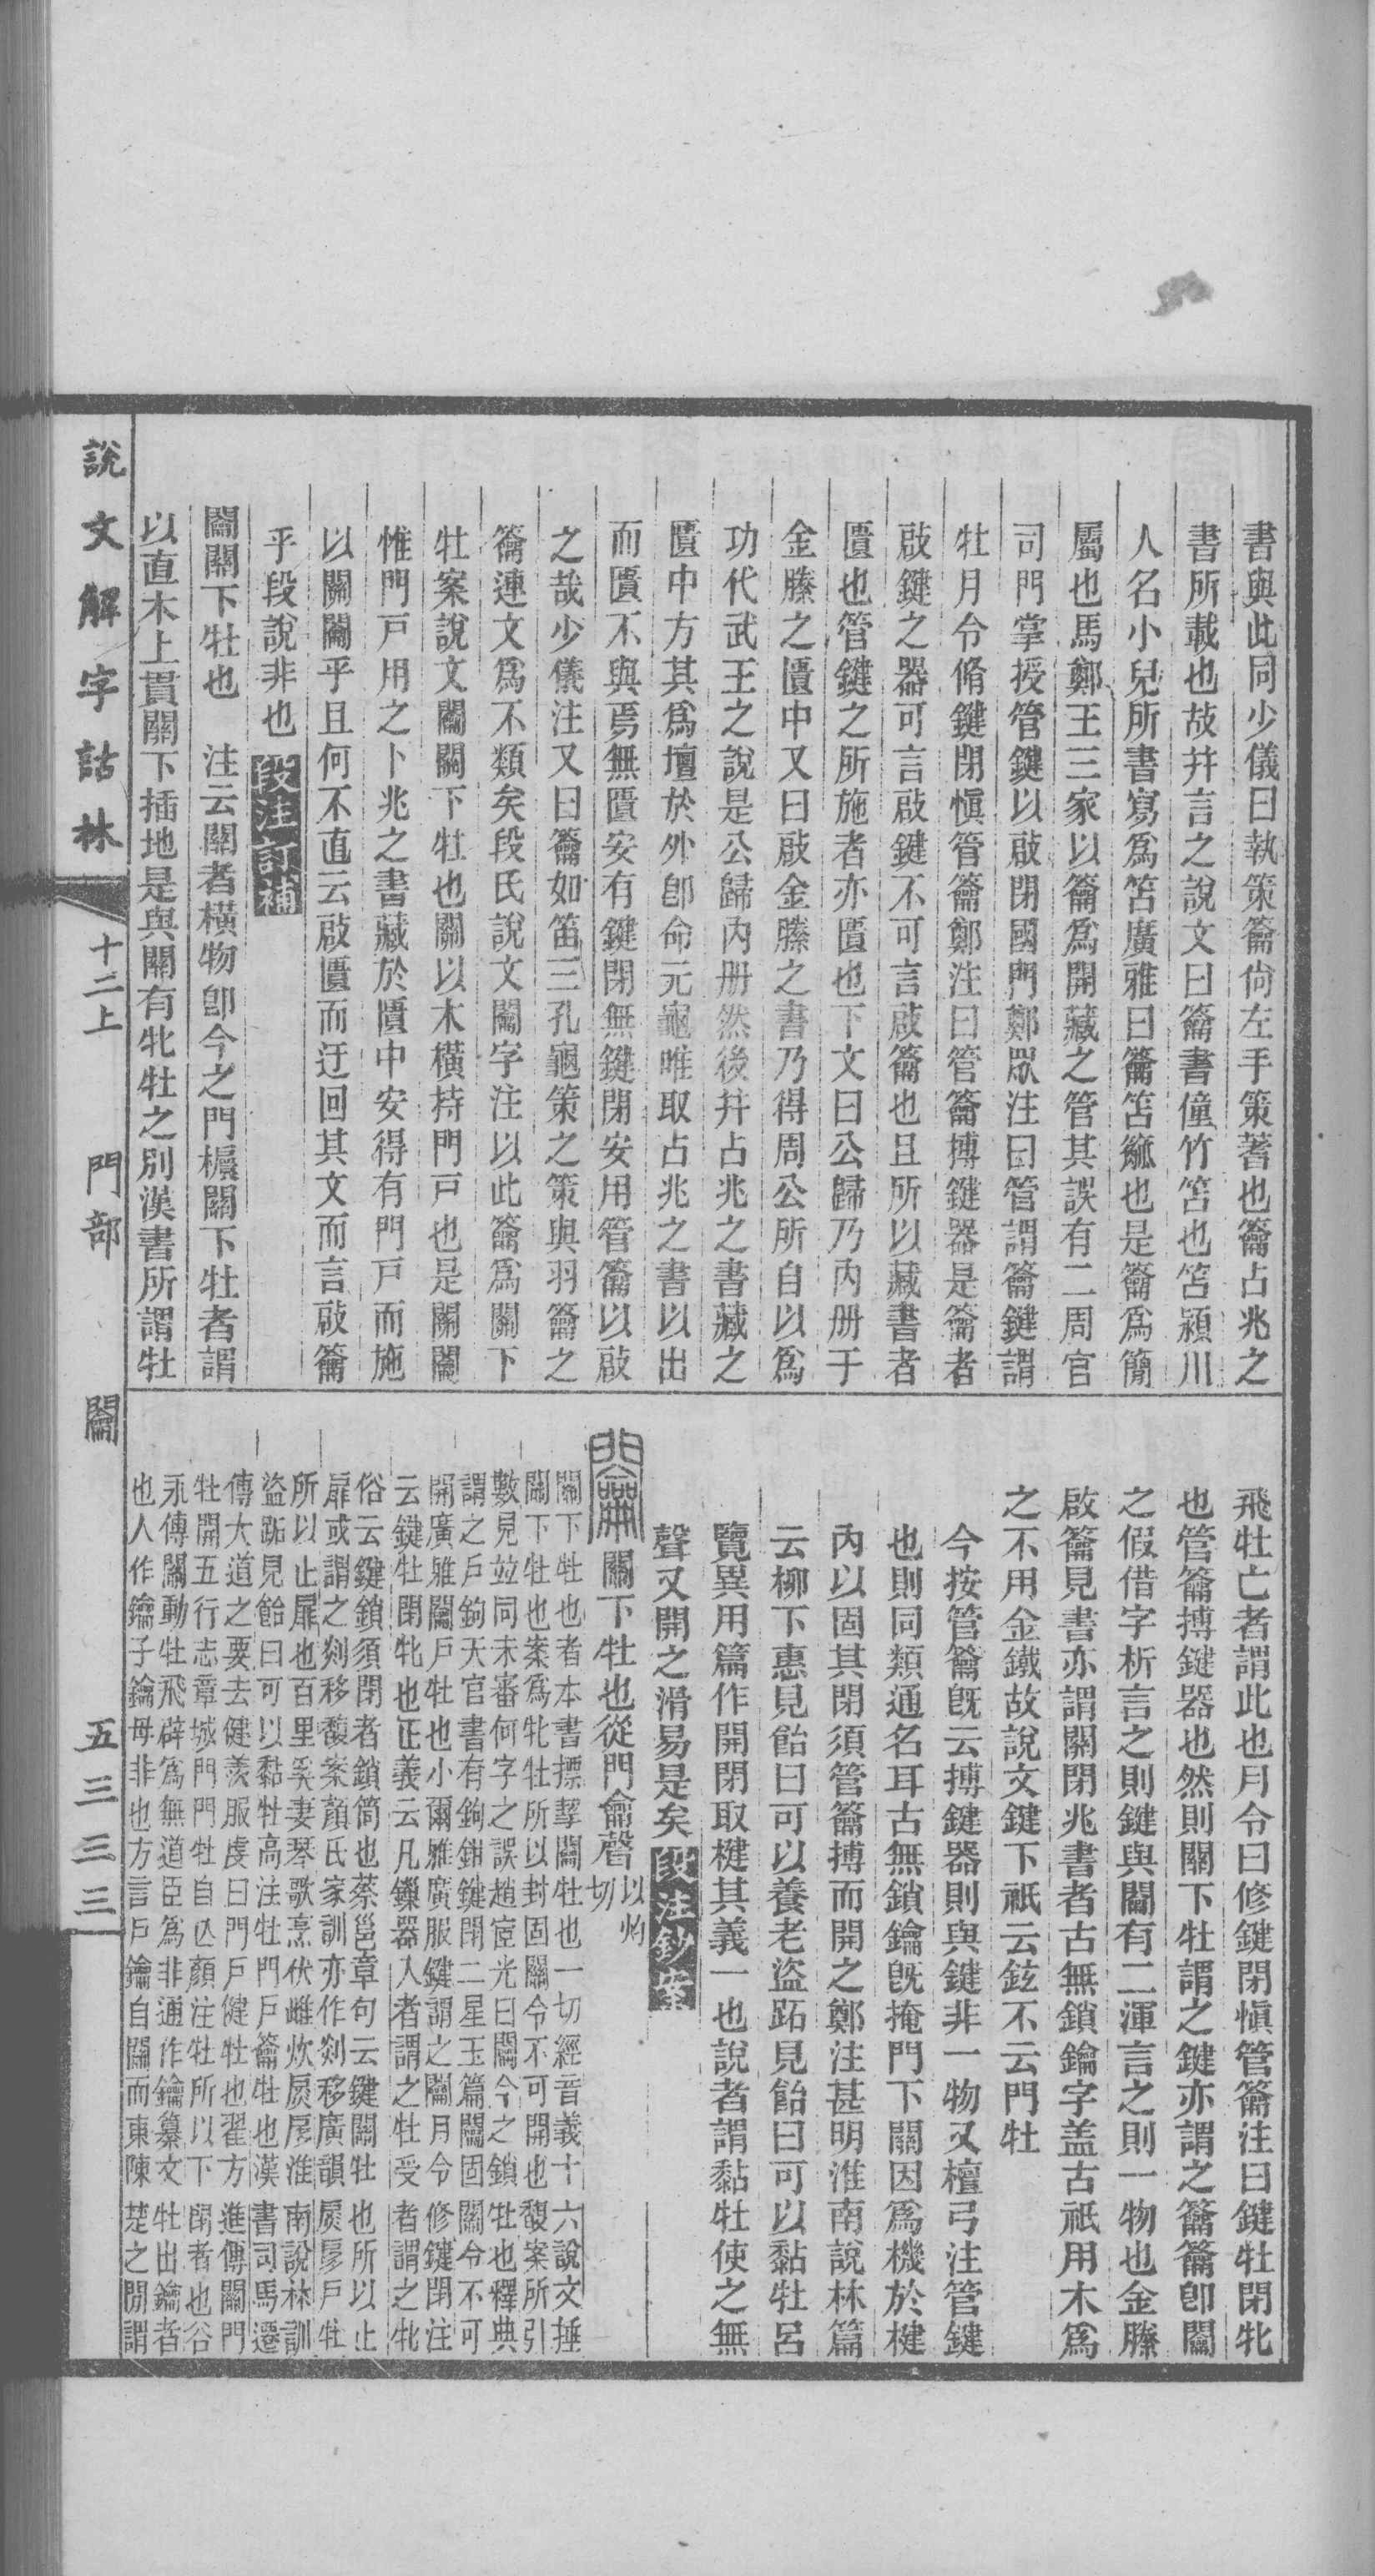 書與此同少儀曰執策籥尙左手策蓍也籥占兆之
書所載也故幷言之說文曰籥書僮竹笘也笘潁川
人名小兒所書寫爲笘廣雅曰籥笘籬也是籥爲簡
屬也馬鄭王三家以籥爲開藏之管其誤有二周官
司門掌授管鍵以啟閉國門鄭眾注曰管謂籥鍵謂
牡月令脩鍵閉愼管籥鄭注曰管籥搏鍵器是籥者
啟鍵之器可言啟鍵不可言啟籥也且所以藏書者
匱也管鍵之所施者亦匱也下文曰公歸乃內册于
金縢之匱中又曰啟金縢之書乃得周公所自以爲
功代武王之說是公歸內册然後幷占兆之書藏之
匱中方其爲壇於外卽命元龜唯取占兆之書以出
而匱不與焉無匱安有鍵閉無鍵閉安用管籥以啟
之哉少儀注又曰籥如笛三孔龜策之策與羽籥之
籥連文爲不類矣段氏說文闔字注以此籥爲關下
牡案說文闔關下牡也關以木橫持門戸也是關闔
惟門戸用之卜兆之書藏於匱中安得有門戸而施
以關闔乎且何不直云啟匱而迂回其文而言啟籥
乎段說非也 段注訂補
闔關下牡也 注云關者橫物卽今之門榐關下牡者謂
以直木上貫關下插地是與關有牝牡之別漢書所謂牡
飛牡亡者謂此也月令曰修鍵閉愼管籥注曰鍵牡閉牝
也管籥搏鍵器也然則關下牡謂之鍵亦謂之籥籥卽闔
之假借字析言之則鍵與闔有二渾言之則一物也金縢
啟籥見書亦謂關閉兆書者古無鎖鑰字盖古祇用木爲
之不用金鐵故說文鍵下祇云鉉不云門牡
今按管籥旣云搏鍵器則與鍵非一物又檀弓注管鍵
也則同類通名耳古無鎖鑰旣掩門下關因爲機於楗
內以固其閉須管籥搏而開之鄭注甚明淮南說林篇
云柳下惠見飴曰可以養老盜跖見飴曰可以黏牡呂
覽異用篇作開閉取楗其義一也說者謂黏牡使之無
聲又開之滑易是矣 段注鈔案
闔 關下牡也從門龠聲 以灼切
關下牡也者本書摽挈闔牡也一切經音義十六說文捶
闔下牡也案爲牝牡所以封固關令不可開也馥案所引
數見竝同未審何字之誤趙宧光曰闔今之鎖牡也釋典
謂之戸鉤天官書有鉤鈐鍵閉二星玉篇闔固關令不可
開廣雅闔戸牡也小爾雅廣服鍵謂之闔月令修鍵閉注
云鍵牡閉牝也正義云凡鏁器入者謂之牡受者謂之牝
俗云鍵鎖須閉者鎖筒也蔡邕章句云鍵關牡也所以止
扉或謂之剡移馥案顏氏家訓亦作剡移廣韻扊扅戸牡
所以止扉也百里奚妻琴歌烹伏雌炊扊扅淮南說林訓
盜跖見飴曰可以黏牡高注牡門戸籥牡也漢書司馬遷
傳大道之要去健羨服虔曰門戸健牡也翟方進傳關門
牡開五行志章城門門牡自亾顏注牡所以下閉者也谷
永傳關動牡飛辟爲無道臣爲非通作鑰纂文牡出鑰者
也人作鑰子鑰母非也方言戸鑰自關而東陳楚之閒謂
說文解字詁林 十二上 門部 闔 五三三三